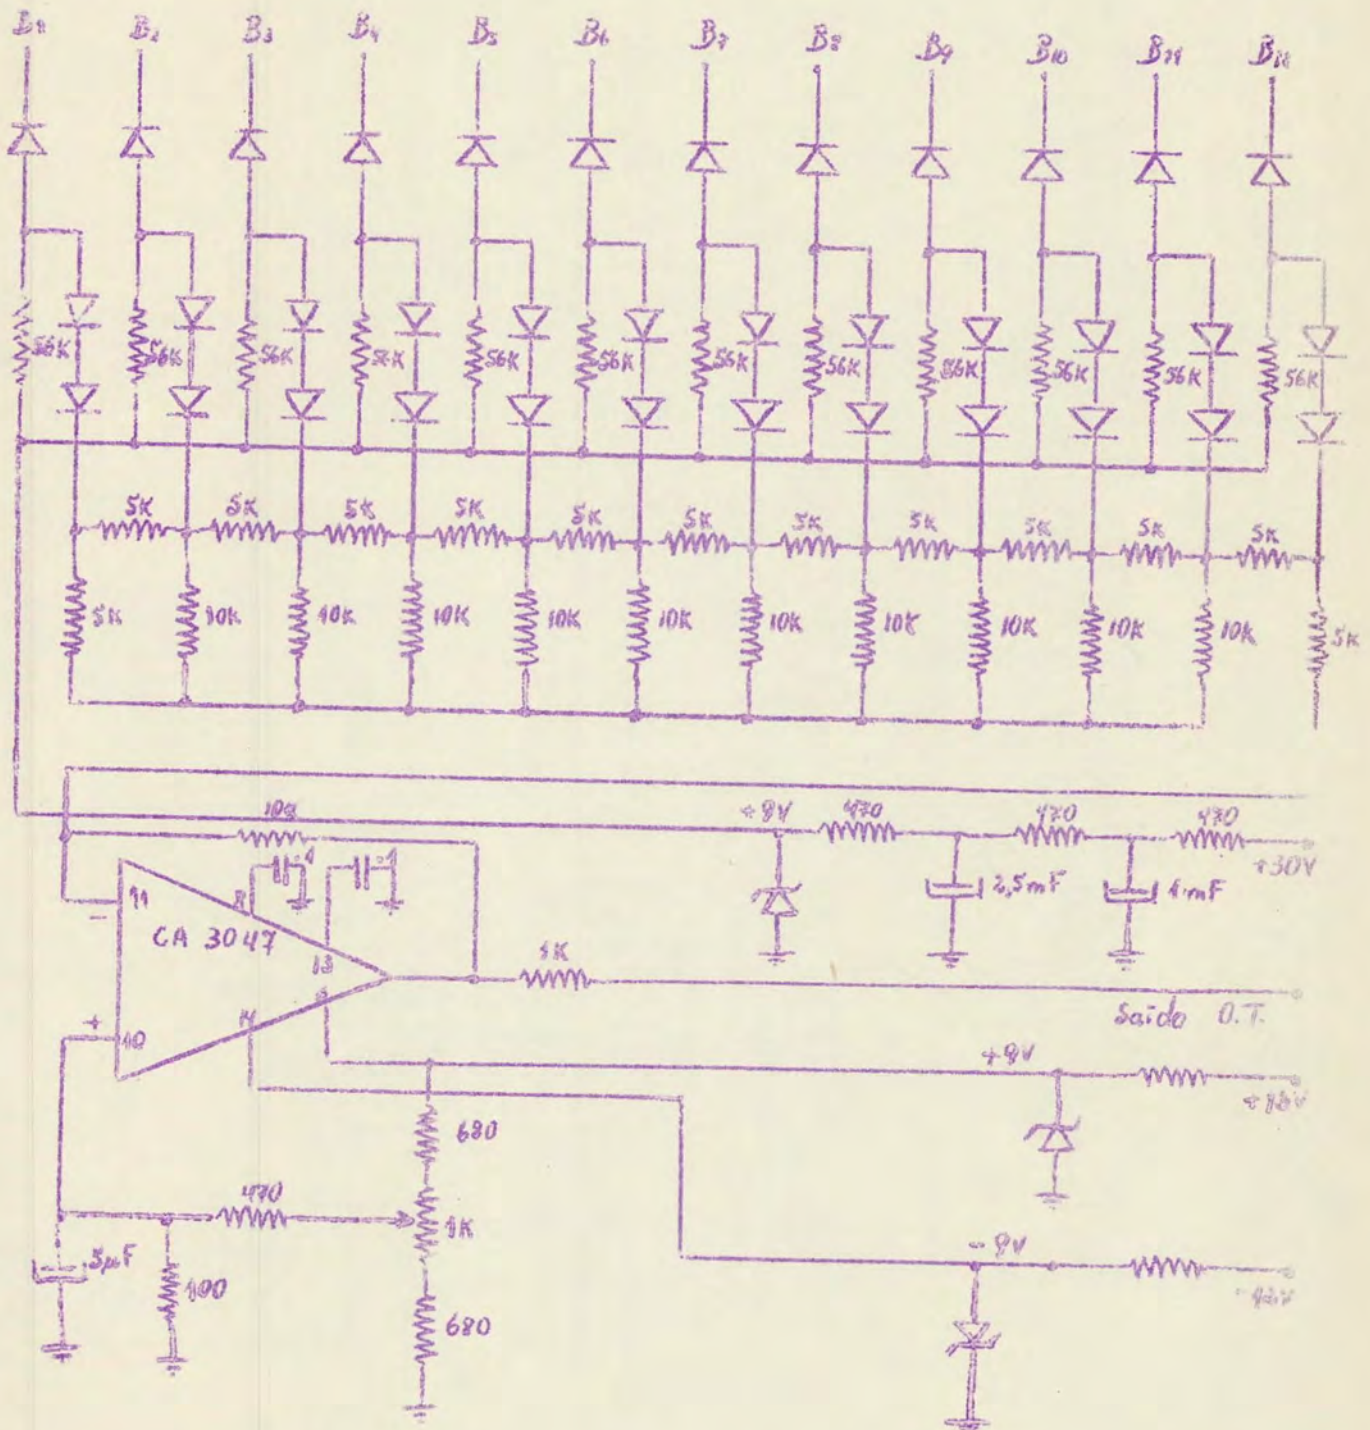 B1 B2 B3 B4 B5 B6 B7 B8 B9 B10 B11 B12
56K 56K 56K 56K 56K 56K 56K 56K 56K 56K 56K 56K
5K 5K 5K 5K 5K 5K 5K 5K 5K 5K 5K
5K 10K 10K 10K 10K 10K 10K 10K 10K 10K 10K 5K
+9V 470 470 470
+30V
2,5mF 1mF
11 8 .1 .1
- CA 3047 13
1K
Saída D.T.
+ 10 14
+9V
680
470
1K
-9V
5µF 100
680